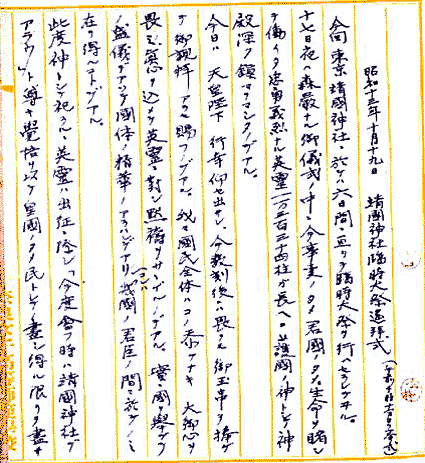 昭和十三年十月十九日 靖國神社臨時大祭遙拜式
今回東京靖國神社ニ於テハ六日間ニ亘リ臨時大祭ヲ行ハセラレ
十七日夜ハ森嚴ナル御儀式ノ中ニ今事変ノタメ君國ノタメ生命ヲ賭シ
テ働イタ忠勇義烈ナル英靈一万三百三十四柱ガ長ヘニ護國ノ神トシテ神
殿深ク鎮マリマシタノデアル。
今日ハ 天皇陛下 行幸仰セ出サレ、今数刻後ニハ畏クモ御玉串ヲ捧ゲ
テ御親拝アラセ賜フノデアル。我々國民全体ハコノ忝ケナキ大御心ヲ
畏ミ、衷心ヲ込メテ英靈ニ對シ黙禱ヲサゝゲルノデアル。實ニ國ヲ擧ゲテ
ノ盛儀デアッテ國体ノ精華ノアラハレデアリ我國ノ君臣ノ間ニ於テノミ
在リ得ルコトデアル。
此度神トシテ祀ラルゝ英靈ハ出征ニ際シ「今度會フ時ハ靖國神社デ
アラウ」ト尊キ覺悟ノ以テ皇國ノタメ民トシテノ盡シ得ル限リヲ盡サ